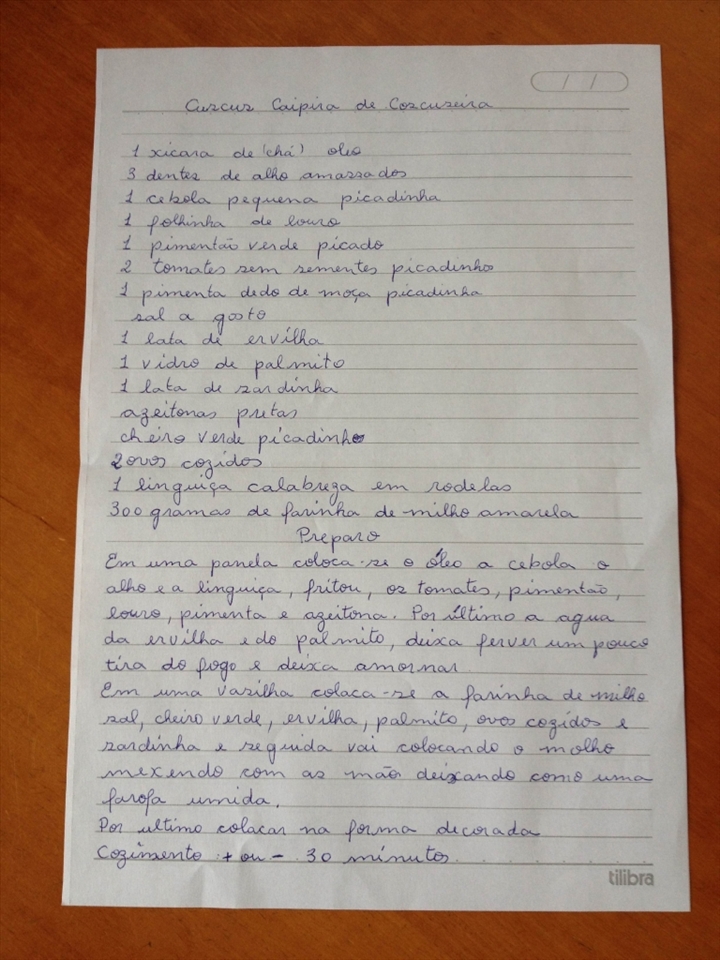 Cuscuz Caipira de Cozcuzeira
1 xicara de (chá) óleo
3 dentes de alho amassados
1 cebola pequena picadinha
1 folhinha de louro
1 pimentão verde picado
2 tomates sem sementes picadinho
1 pimenta dedo de moça picadinha
sal a gosto
1 lata de ervilha
1 vidro de palmito
1 lata de sardinha
azeitonas pretas
cheiro verde picadinho
2 ovos cozidos
1 linguiça calabreza em rodelas
300 gramas de farinha de milho amarela
Preparo
Em uma panela coloca-se o óleo a cebola o
alho e a linguiça, fritou, os tomates, pimentão,
louro, pimenta e azeitona. Por último a agua
da ervilha e do palmito, deixa ferver um pouco
tira do fogo e deixa amornar
Em uma vasilha colaca-se a farinha de milho
sal, cheiro verde, ervilha, palmito, ovos cozidos e
sardinha e seguida vai colocando o molho
mexendo com as mão deixando como uma
farofa umida.
Por ultimo colacar na forma decorada
Cozimento + ou - 30 minutos.
tilibra